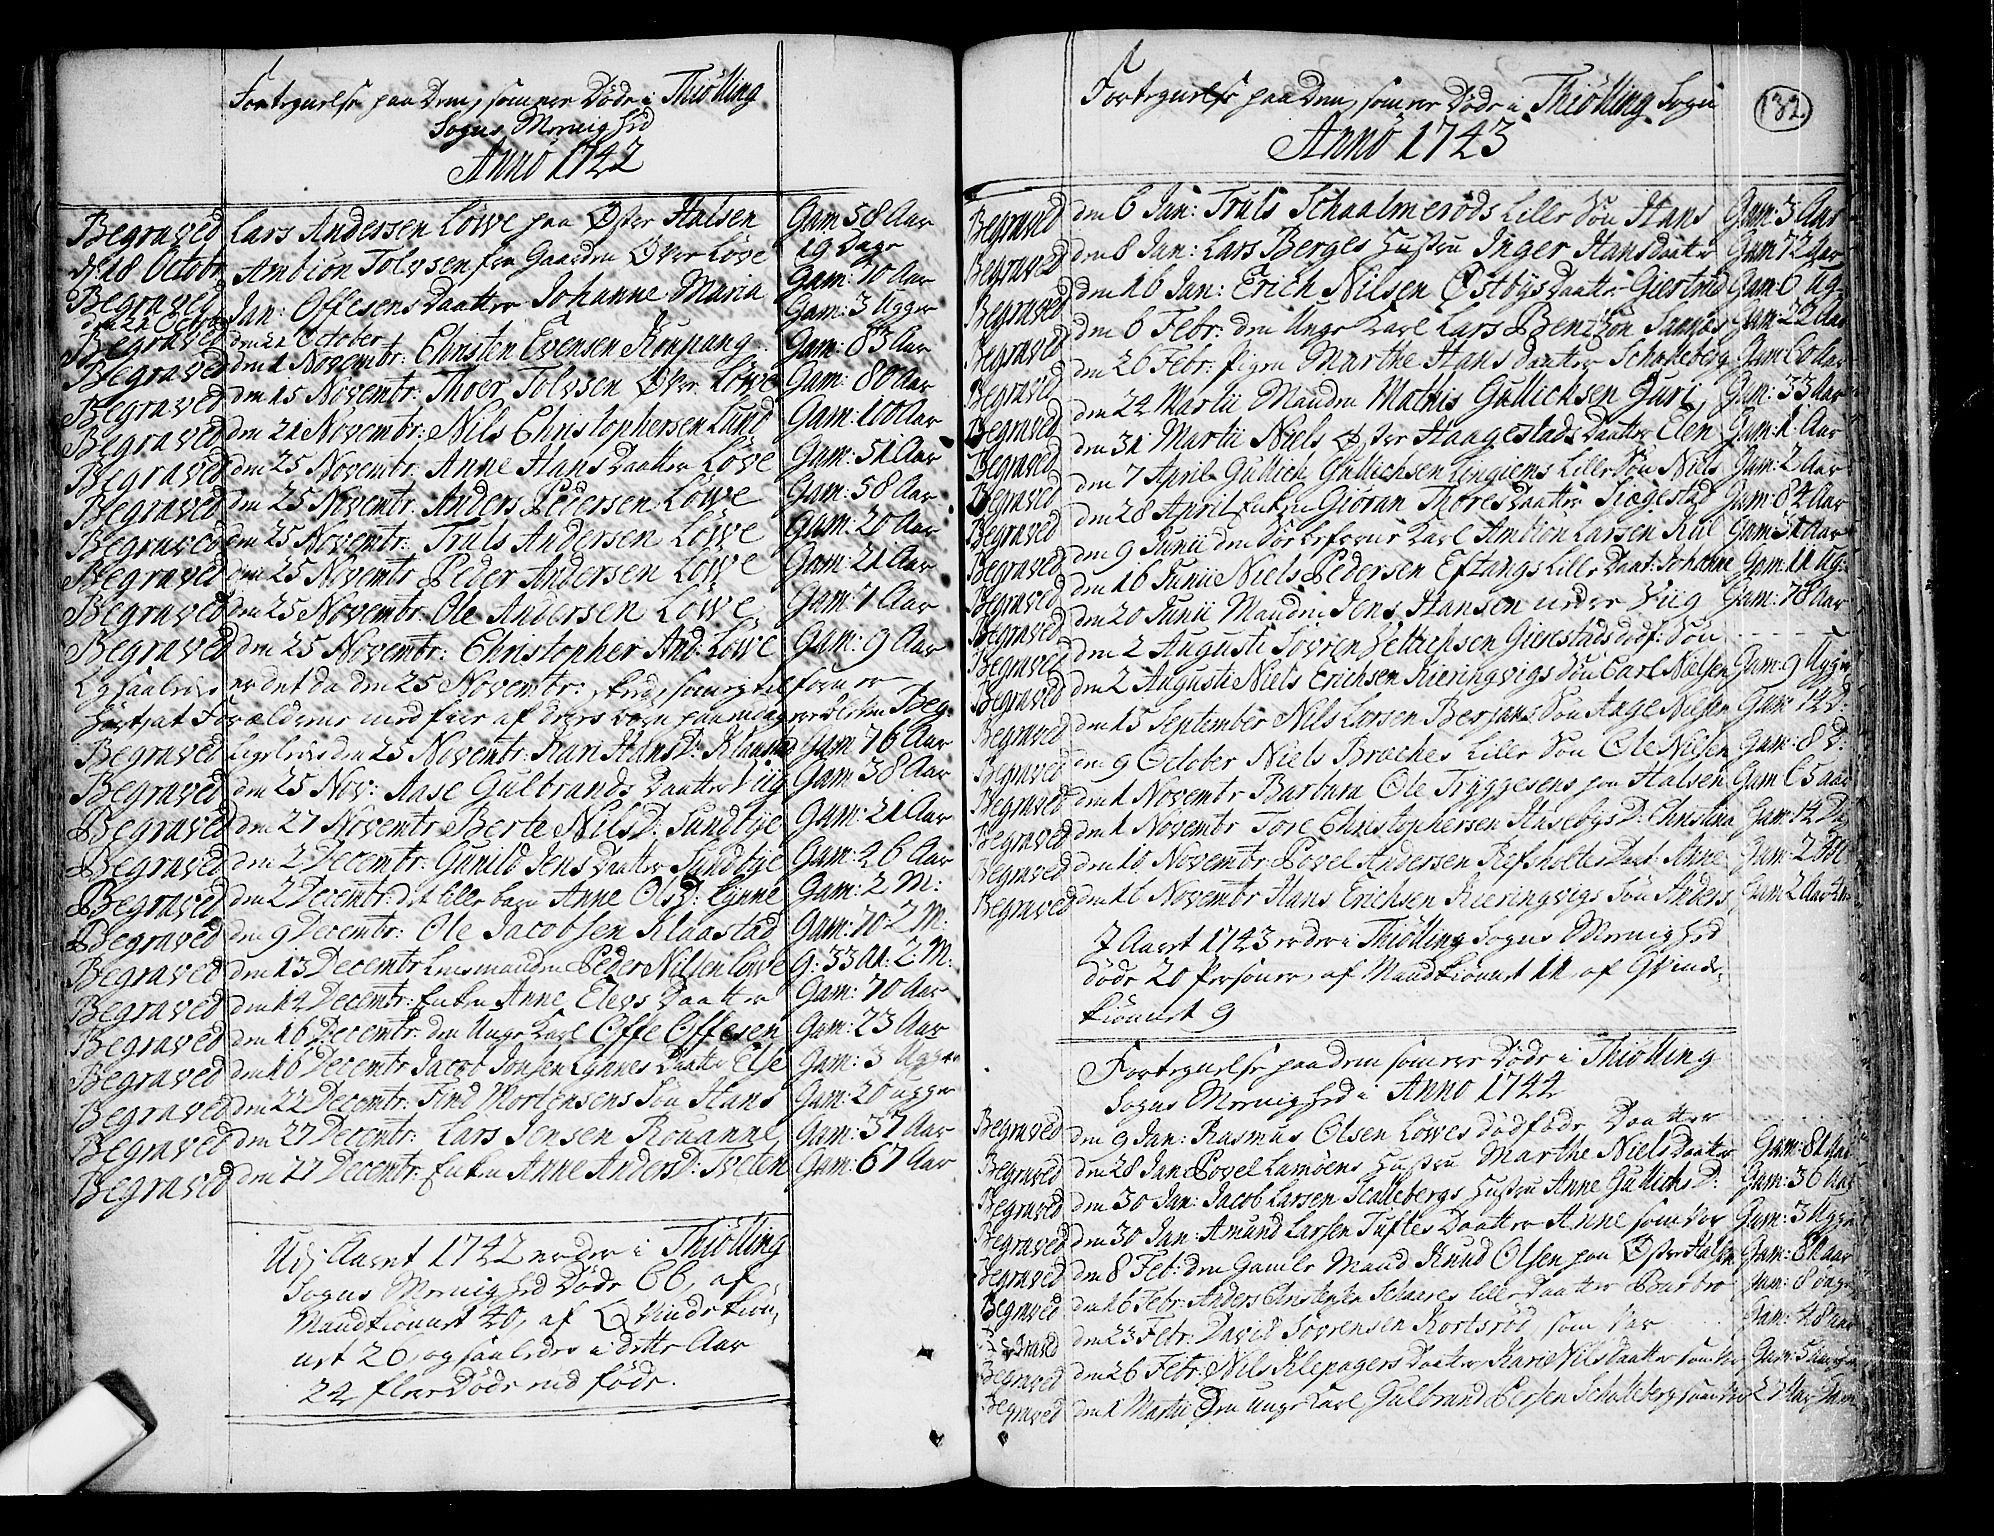 Fortegnelse paa Dem, som ere Døde i Thiölling
Sogns Menighed
Anno 1742
Begraved Lars Andersen Löwe paa Øster Halsen Gam 58 Aar
d: 18 Octobr Ambiön Tolvsen fra Gaarden Øver Löve 19 Dage Gam: 70 Aar
Begraved Jan: Offesens Daatter Johanne Maria Gam: 3 Ugger
den 21 October
Begraved den 1 Novembr: Christen Evensen Koupang Gam: 83 Aar
Begraved den 15 Novembr: Thoer Tolvsen Øver Löwe Gam: 80 Aar
Begraved den 21 Novembr: Nils Christophersen Lund Gam: 100 Aar
Begraved den 25 Novembr: Anne Hans Daatter Löve Gam: 51 Aar
Begraved den 25 Novembr: Anders Pedersen Löwe Gam: 58 Aar
Begraved den 25 Novembr: Truls Andersen Löwe Gam: 20 Aar
Begraved den 25 Novembr: Peder Andersen Löwe Gam: 21 Aar
Begraved den 25 Novembr: Ole Andersen Löwe Gam: 7 Aar
Begraved den 25 Novembr: Christopher And: Löwe Gam: 9 Aar
Og saaledes er det da den 25 Novembr: skeed, som
at Forældrene med fire af deres børn paa en dag ere bleven Beg.
Begraved Ligeledes den 25 Novembr: Kari Hans D: Klaastad Gam 76 Aar
Begraved den 25 Nov: Aase Gulbrands Daatter Viig Gam 38 Aar
Begraved den 27 Novembr: Berte Nils D: Sundbye Gam: 21 Aar
Begraved den 2 Decembr: Gunild Jens Daatter Sundbye Gam: 26 Aar
Begraved den 2 Decembr: det lille barn Anne Ols D: Lynne Gam: 2 M:
Begraved den 9 Decembr: Ole Jacobsen Klaastad Gam: 70 2 M:
Begraved den 13 Decembr Leensmanden Peder Nilsen Löwe G: 33 A: 2 M:
Begraved den 14 Decembr: Enken Anne Elevs Daatter Gam: 70 Aar
Begraved den 16 Decembr: den Unge Karl Offe Offesen Gam: 23 Aar
Begraved den 16 Decembr Jacob Jonsen Lynnes Daatter Else Gam: 3 Ugger
Begraved den 22 Decembr: Find Mortensens Sön Hans Gam: 20 ugger
Begraved den 27 Decembr: Lars Jensen Rouanne Gam: 37 Aar
Begraved den 27 Decembr: Enken Anne Anders D: Tveten Gam: 67 Aar
Udj Aaret 1742 ere der i Thiölling
Sogns Menighed Døde 66, af
Mandkiönnet 40, af Qvindekiön-
net 26, og saaledes i dette Aar
24 flere Døde end föde.
Fortegnelse paa Dem, som ere Döde i Thiölling Sogn
182
Anno 1743
Begraved den 6 Jan: Truls Schaalmeröds Lille Sön Hans Gam: 3 Aar
Begraved den 8 Jan: Lars Berges Hustru Inger Hansdaatter Gam 72 Aar
Begraved den 16 Jan: Erich Nilsen Østbys Daatter Giertrud Gam 6 Ug
Begraved den 6 Febr: den Unge Karl Lars Bentsön Gam: 22 Aar
Begraved den 26 Febr: Pigen Marthe Hans Daatter Schalleberg Gam 60 Aar
Begraved den 24 Martii Manden Mathis Gullichsen Guri Gam: 33 Aar
Begraved den 31 Martii Niels Øster Haagestads Daatter Elen Gam: 1 Aar
Begraved den 7 April Gullich Gullichsen Lingiems Lille Sön Niels Gam: 2 Aar
Begraved den 28 April Enken Giöran Thores Daatter Gam: 84 Aar
Begraved den 9 Junii den Karl Ambiön Larsen Gam 31 Aar
Begraved den 16 Junii Niels Pedersen Eftangs Lille Daat: Johanne Gam: 11 Ug:
Begraved den 20 Junii Manden Jens Hansen Viig Gam: 78 Aar
Begraved den 2 Augusti Sövren Gierestads dödf: Sön
Begraved den 2 Augusti Niels Erichsen Kieringvigs Sön Carl Nielsen Gam: 9 Ugger
Begraved den 15 September Nils Larsen Berjans Sön Aage Nilsen Gam: 14 D:
Begraved den 9 October Niels Bræches Lille Sön Ole Nilsen Gam: 8 D:
Begraved den 1 Novembr Barbara Ole Tryggesens paa Halsen Gam 65 aar
Begraved den 1 Novembr Tore Christophersen Hasebys D: Christina Gam: 14 Dag
Begraved den 10 Novembr Povel Andersen Refsholts Dat: Anne Gam: 2
Begraved den 16 Novembr Hans Erichsen Kieringvigs Sön Anders Gam 2 Aar
J Aaret 1743 er der i Thiölling Sogns Menighed
döde 20 Personer, af Mandkiönnet 11 af Qvinde-
kiönnet 9
Fortegnelse paa Dem som ere Döde i Thiölling
Sogns Menighed i Anno 1744
Begraved den 9 Jan: Rasmus Olsen Löwes dödföde Daatter
Begraved den 28 Jan: Povel Lamöens Hustru Marthe Niels Daatter Gam: 81 Aar
Begraved den 30 Jan: Jacob Larsen Scallebergs Hustru Anne Gullichs D: Gam: 36 Aar
Begraved den 30 Jan: Amund Larsen Tuftes Daatter Anne som var Gam: 3 Ugger
Begraved den 8 Feb: den Gamle Mand Knud Olsen paa Øster Halsen Gam: 81 aar
Begraved den 16 Febr: Anders Christensen Schaares Lille Daatter Barbro Gam: 8 dage
Begraved den 23 Febr: David Sövrensen Kortsröd, som var Gam: 48 aar
Begraved den 26 Febr: Nils Klepagers Daatter Karie Nils Daatter som var Gam: 5
Begraved den 1 Martii Den Unge Karl Gulbrand Schalleberg som var 21 Aar Gam